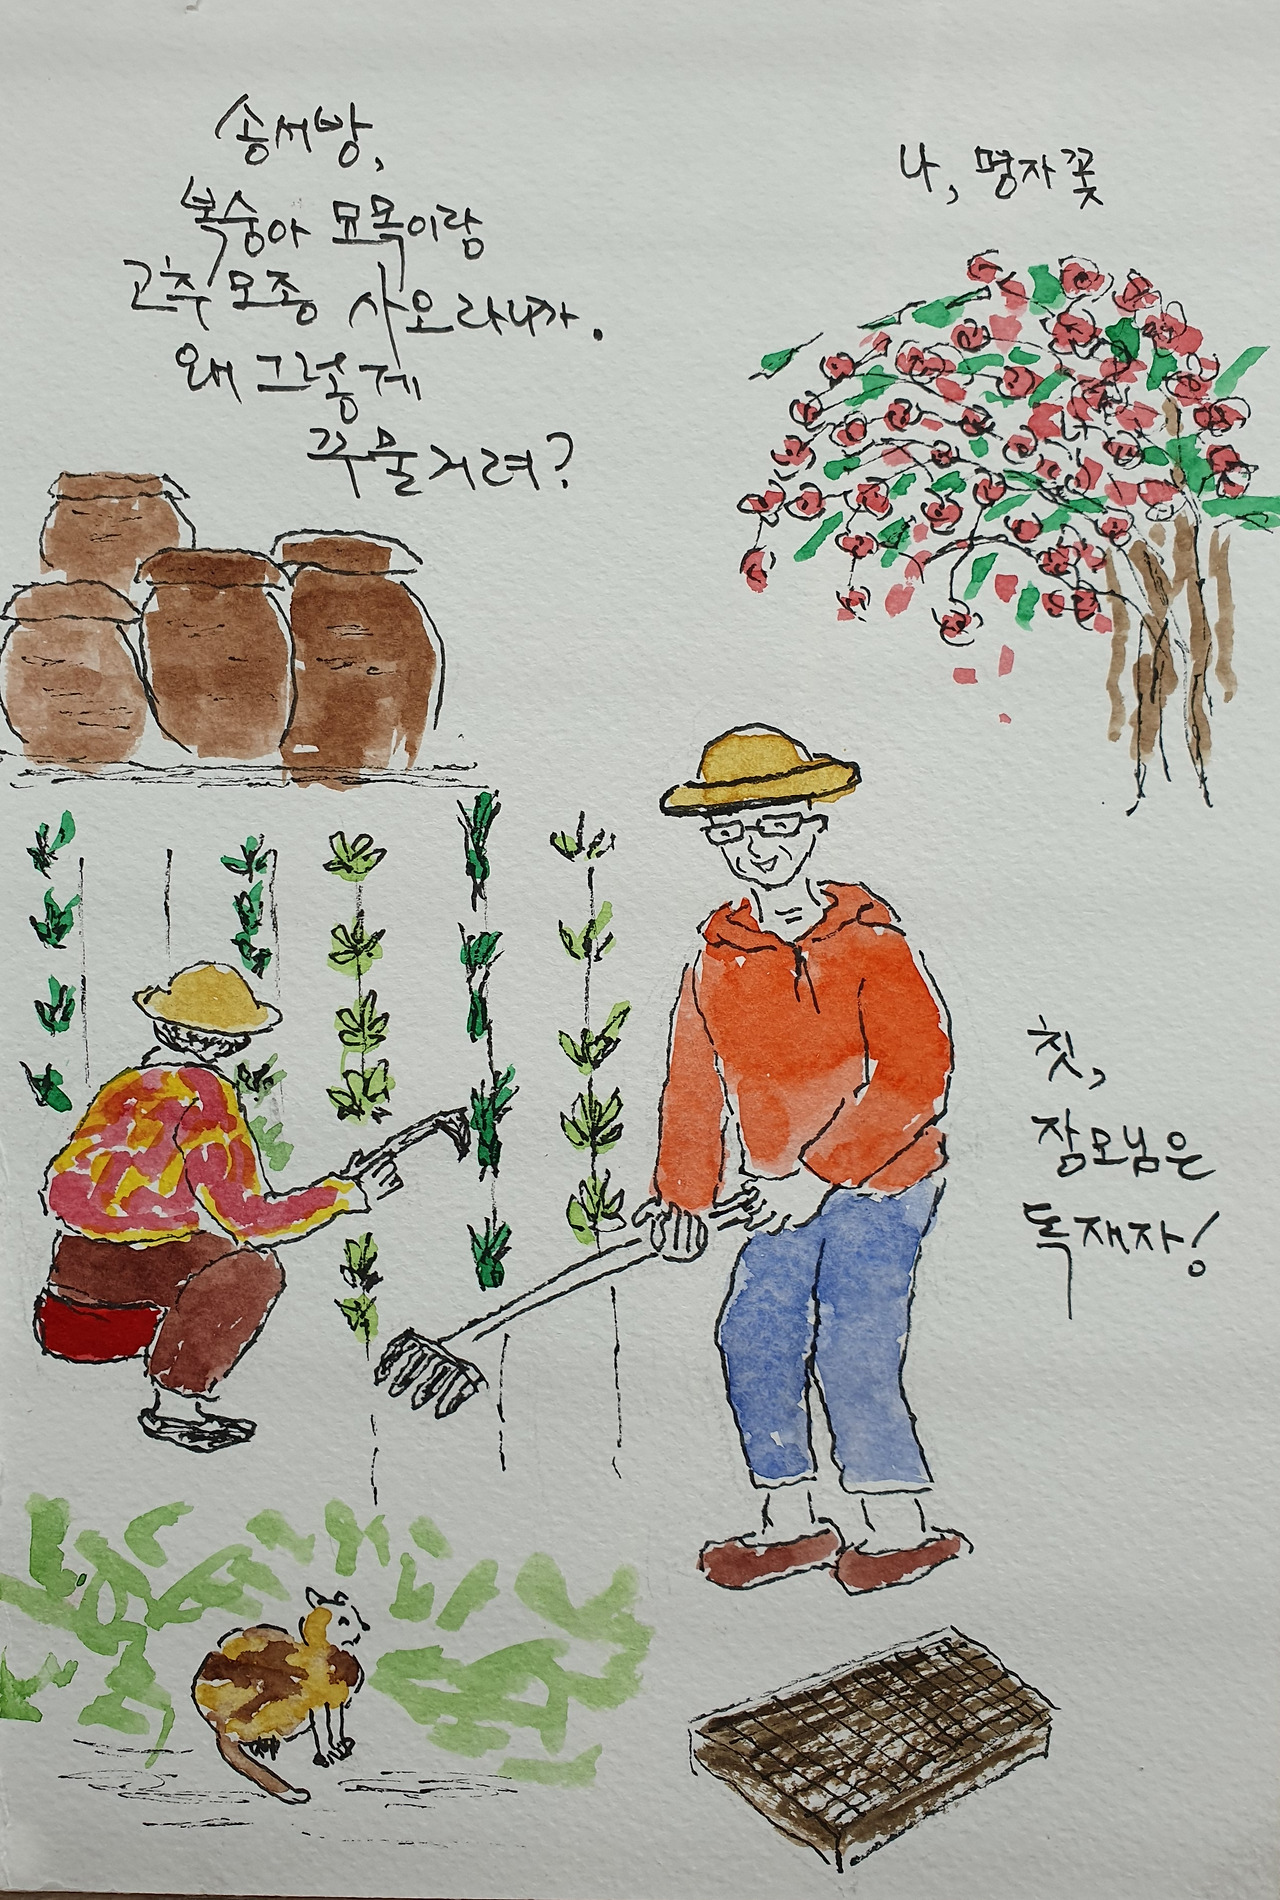 송서방,
복숭아 묘목이랑
고추 모종 사오라니까.
왜 그렇게
꾸물거려?
나, 명자꽃
칫,
장모님은
독재자!